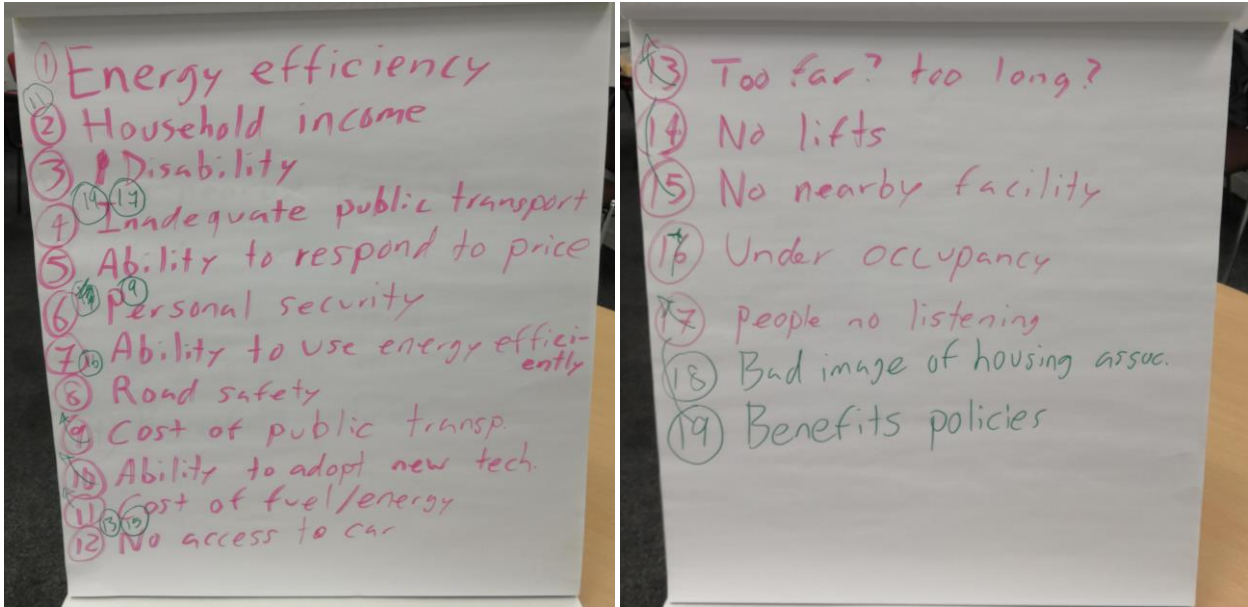 1 Energy efficiency
11
2 Household income
3 Disability
19 17
4 Inadequate public transport
5 Ability to respond to price
9
6 Personal security
7 Ability to use energy effici-
16 ently
8 Road safety
9 Cost of public transp.
10 Ability to adopt new tech.
11 Cost of fuel/energy
13 15
12 No access to car
13 Too far? too long?
14 No lifts
15 No nearby facility
16 Under occupancy
17 people no listening
18 Bad image of housing assoc.
19 Benefits policies